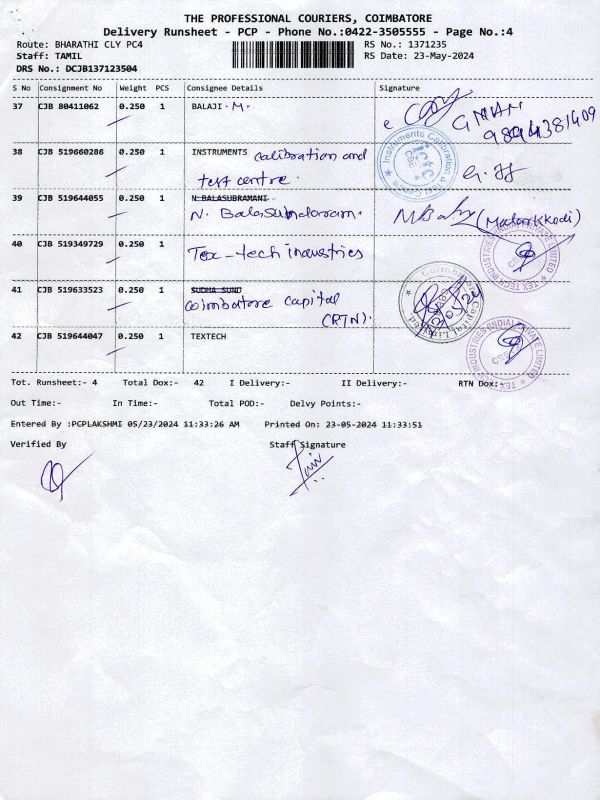 THE PROFESSIONAL COURIERS, COIMBATORE
Delivery Runsheet - PCP - Phone No.:0422-3505555 - Page No.:4
Route: BHARATHI CLY PC4 RS No.: 1371235
Staff: TAMIL RS Date: 23-May-2024
DRS No.: DCJB137123504
S No Consignment No Weight PCS Consignee Details Signature
37 CJB 80411062 0.250 1 BALAJI. M.
9894381409
38 CJB 519660286 0.250 1 INSTRUMENTS calibration and
test centre.
39 CJB 519644055 0.250 1 N BALASUBRAMANI
N. Balasundaram. (Malarkkodi)
40 CJB 519349729 0.250 1 Tex-tech industries
41 CJB 519633523 0.250 1 SUDHA SUND
Coimbatore capital
(RTN).
42 CJB 519644047 0.250 1 TEXTECH
Tot. Runsheet:- 4 Total Dox:- 42 I Delivery:- II Delivery:- RTN Dox:-
Out Time:- In Time:- Total POD:- Delvy Points:-
Entered By :PCPLAKSHMI 05/23/2024 11:33:26 AM Printed On: 23-05-2024 11:33:51
Verified By Staff Signature